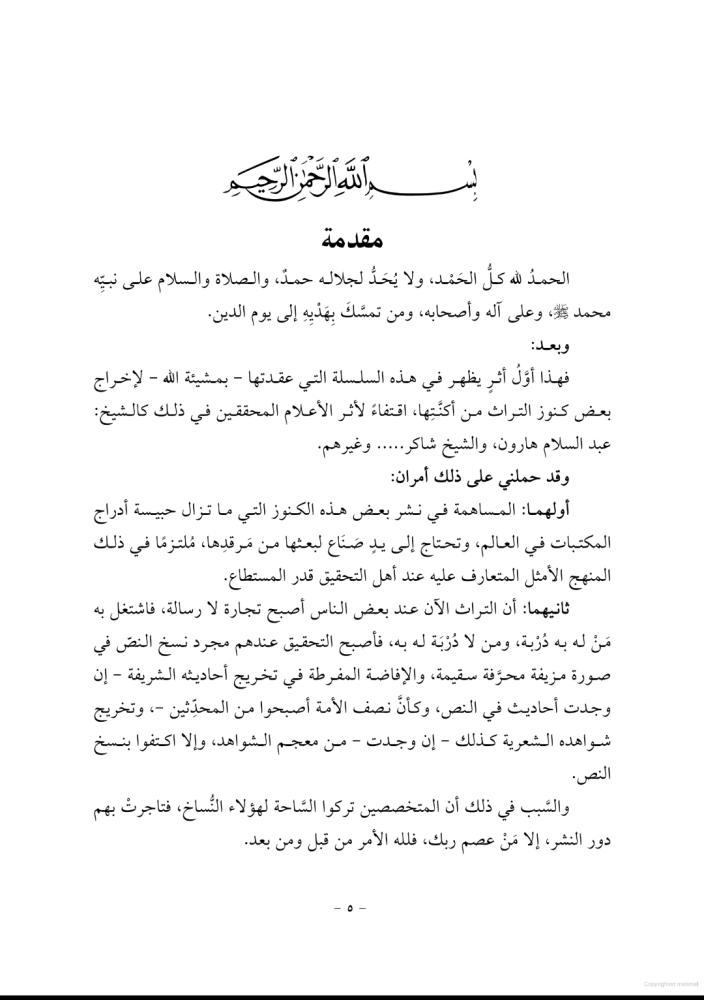 بسم الله الرحمن الرحيم
مقدمة
الحمدُ لله كلُّ الحَمْد، ولا يُحَدُّ لجلاله حمدٌ، والصلاة والسلام على نبيّه
محمد ﷺ، وعلى آله وأصحابه، ومن تمسَّكَ بِهَدْيِهِ إلى يوم الدين.
وبعد:
فهذا أوَّلُ أثرٍ يظهر في هذه السلسلة التي عقدتها – بمشيئة الله – لإخراج
بعض كنوز التراث من أكنَّتِها، اقتفاءً لأثر الأعلام المحققين في ذلك كالشيخ:
عبد السلام هارون، والشيخ شاكر..... وغيرهم.
وقد حملني على ذلك أمران:
أولهما: المساهمة في نشر بعض هذه الكنوز التي ما تزال حبيسة أدراج
المكتبات في العالم، وتحتاج إلى يدٍ صَنَاع لبعثها من مَرقدِها، مُلتزمًا في ذلك
المنهج الأمثل المتعارف عليه عند أهل التحقيق قدر المستطاع.
ثانيهما: أن التراث الآن عند بعض الناس أصبح تجارة لا رسالة، فاشتغل به
مَنْ له به دُرْبة، ومن لا دُرْبَة له به، فأصبح التحقيق عندهم مجرد نسخ النصّ في
صورة مزيفة محرَّفة سقيمة، والإفاضة المفرطة في تخريج أحاديثه الشريفة – إن
وجدت أحاديث في النص، وكأنَّ نصف الأمة أصبحوا من المحدِّثين –، وتخريج
شواهده الشعرية كذلك – إن وجدت – من معجم الشواهد، وإلا اكتفوا بنسخ
النص.
والسَّبب في ذلك أن المتخصصين تركوا السَّاحة لهؤلاء النُّساخ، فتاجرتْ بهم
دور النشر، إلا مَنْ عصم ربك، فلله الأمر من قبل ومن بعد.
– ٥ –
Copyrighted material